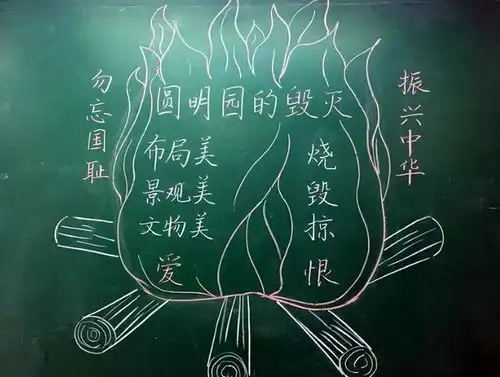 圆明园的毁灭
勿忘国耻
布局美
景观美
文物美
爱
烧
毁
掠
恨
振兴中华